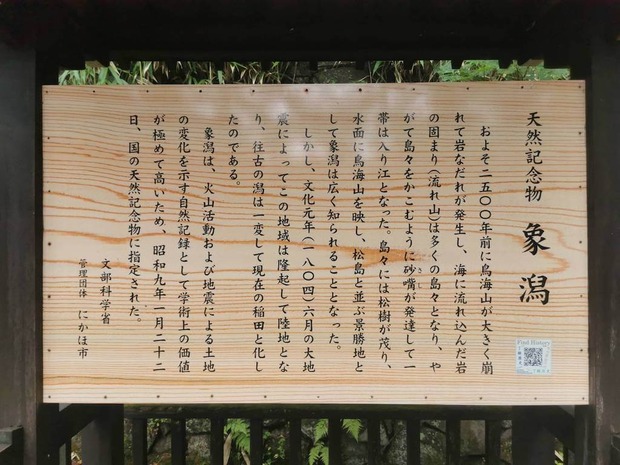 天然記念物 象潟
およそ二五〇〇年前に鳥海山が大きく崩
れて岩なだれが発生し、海に流れ込んだ岩
の固まり(流れ山)は多くの島々となり、や
がて島々をかこむように砂嘴が発達して一
帯は入り江となった。島々には松樹が茂り、
水面に鳥海山を映し、松島と並ぶ景勝地と
して象潟は広く知られることとなった。
しかし、文化元年(一八〇四)六月の大地
震によってこの地域は隆起して陸地とな
り、往古の潟は一変して現在の稲田と化し
たのである。
象潟は、火山活動および地震による土地
の変化を示す自然記録として学術上の価値
が極めて高いため、昭和九年一月二十二
日、国の天然記念物に指定された。
文部科学省
管理団体 にかほ市
Find History